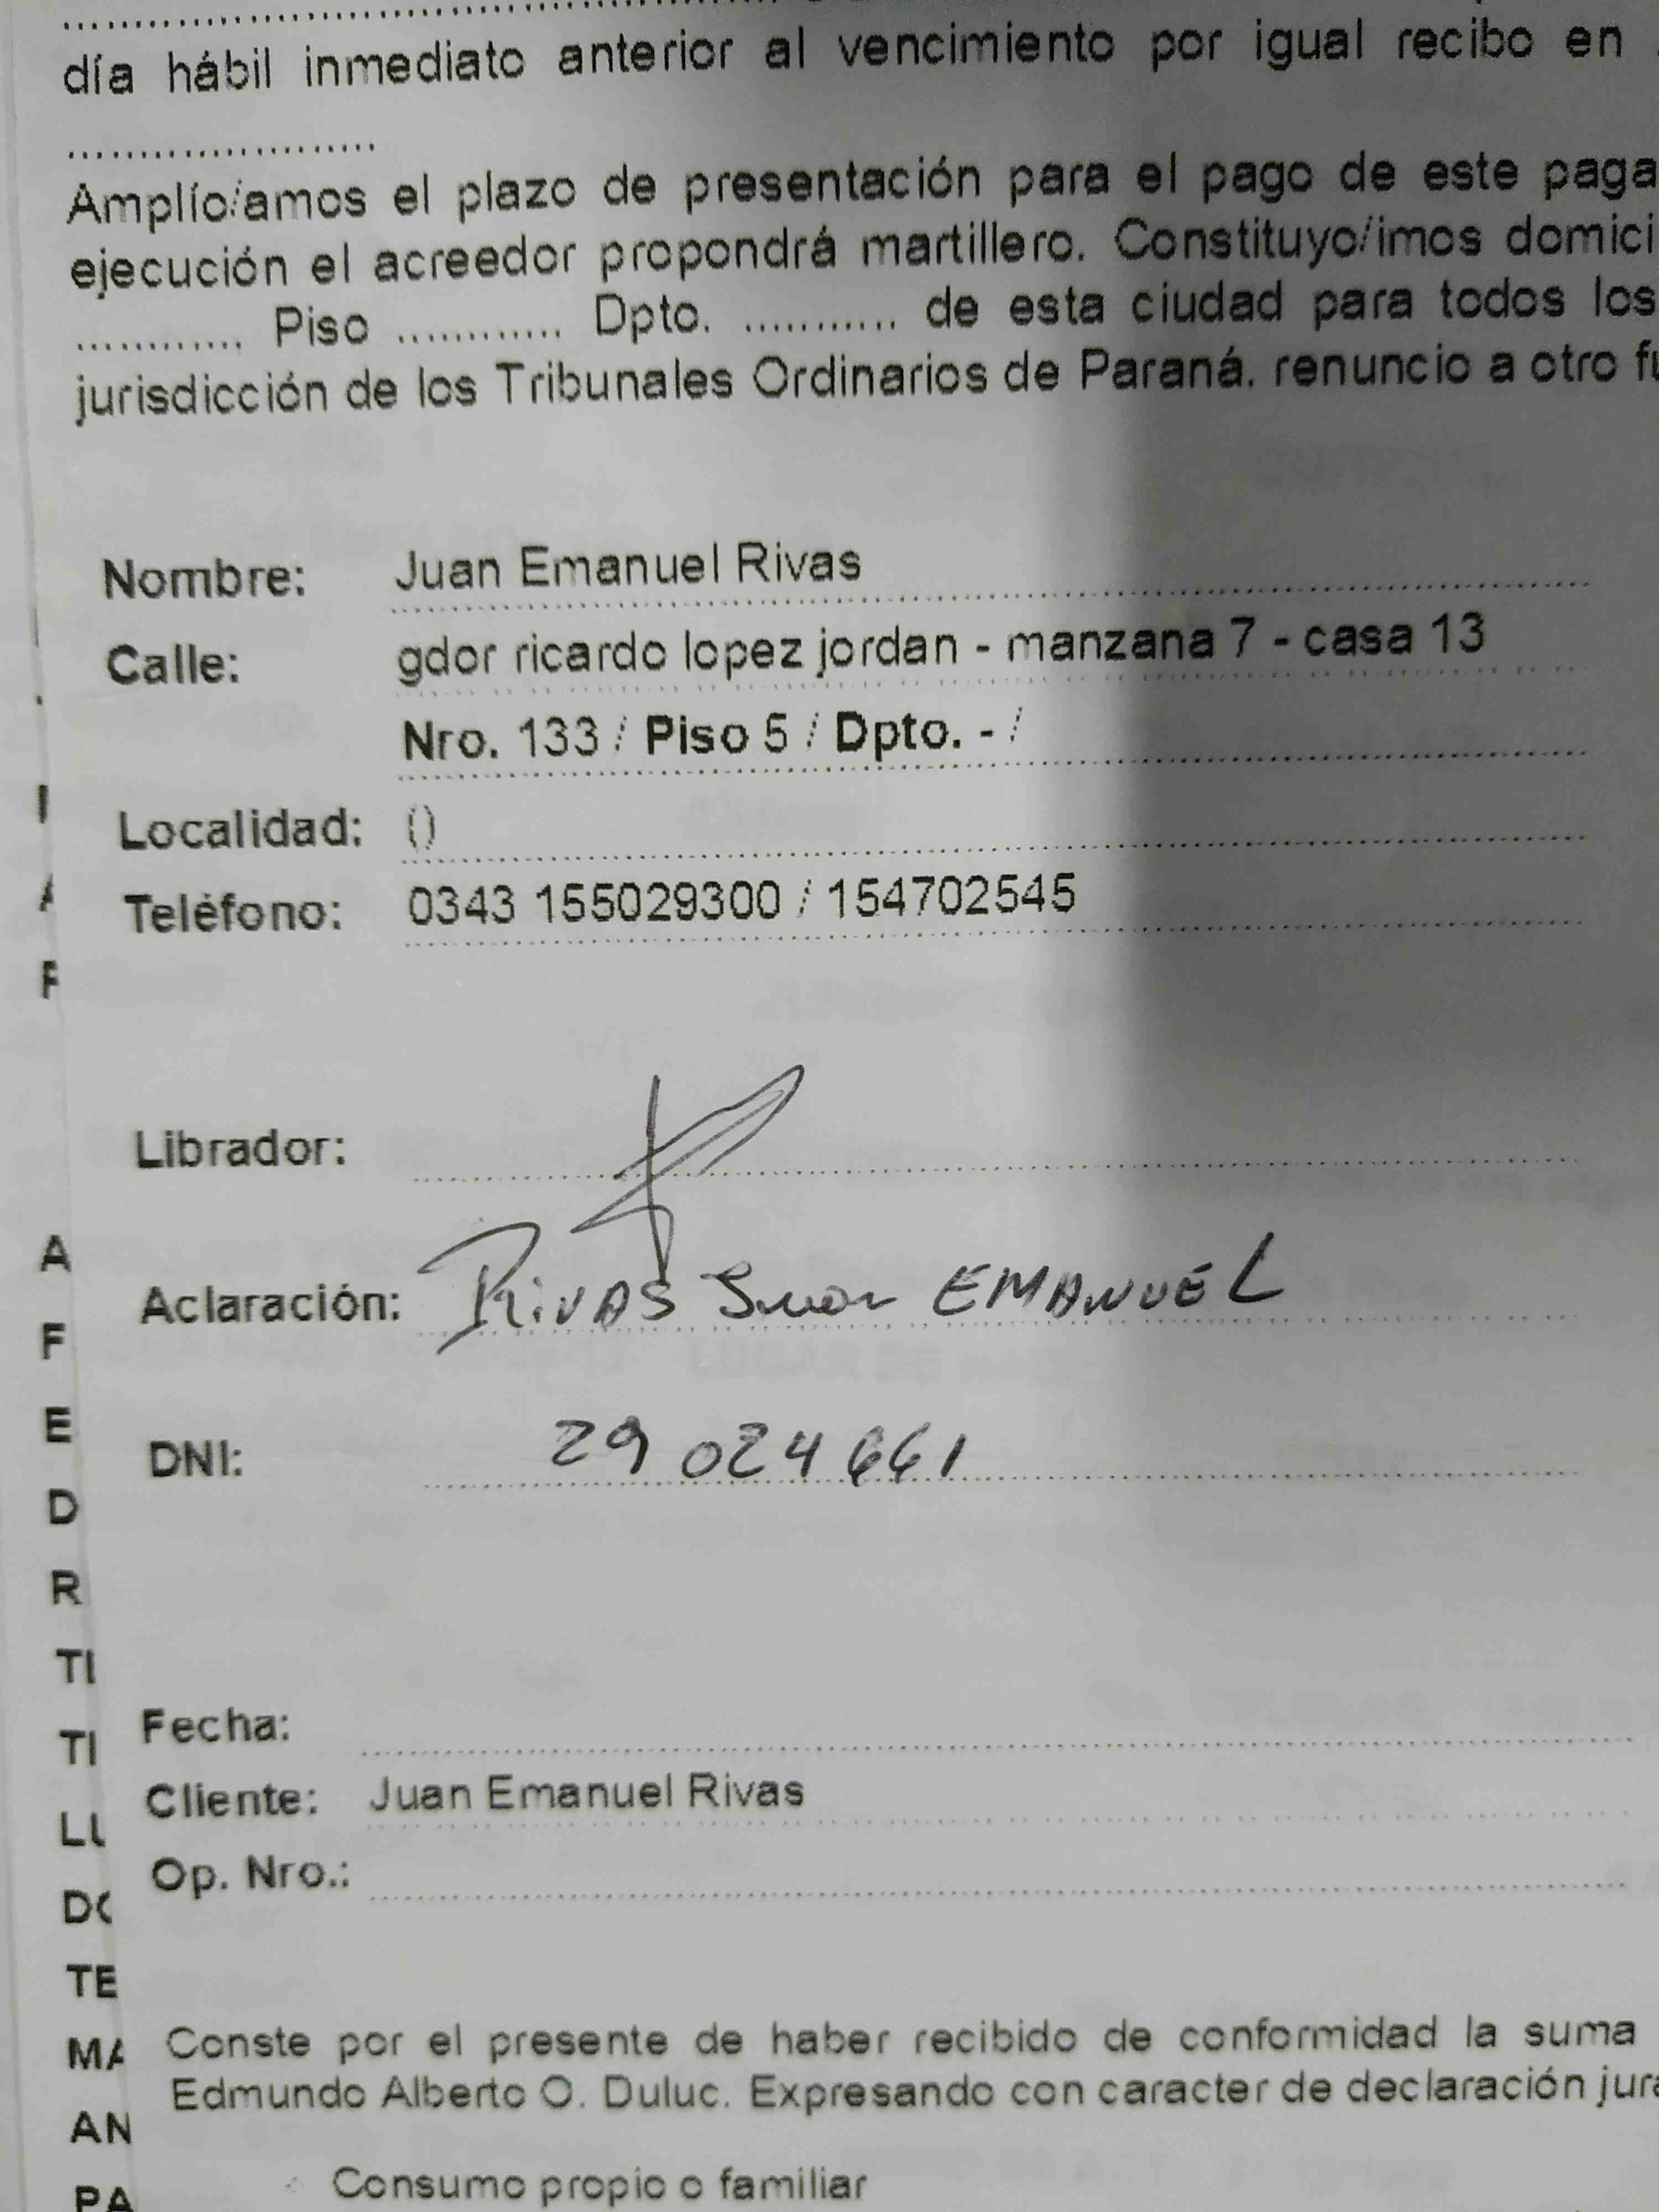 día hábil inmediato anterior al vencimiento por igual recibo en
......................
Amplío/amos el plazo de presentación para el pago de este paga
ejecución el acreedor propondrá martillero. Constituyo/imos domici
............ Piso ............ Dpto. ........... de esta ciudad para todos los
jurisdicción de los Tribunales Ordinarios de Paraná. renuncio a otro fu
Nombre: Juan Emanuel Rivas
Calle: gdor ricardo lopez jordan - manzana 7 - casa 13
Nro. 133 / Piso 5 / Dpto. - /
Localidad: ()
Teléfono: 0343 155029300 / 154702545
Librador:
Aclaración: RIVAS Juan EMANUEL
DNI: 29 024 661
Fecha:
Cliente: Juan Emanuel Rivas
Op. Nro.:
Conste por el presente de haber recibido de conformidad la suma
Edmundo Alberto O. Duluc. Expresando con caracter de declaración jura
Consumo propio o familiar
A
F
E
D
R
TI
TI
LU
DO
TE
MA
AN
PA